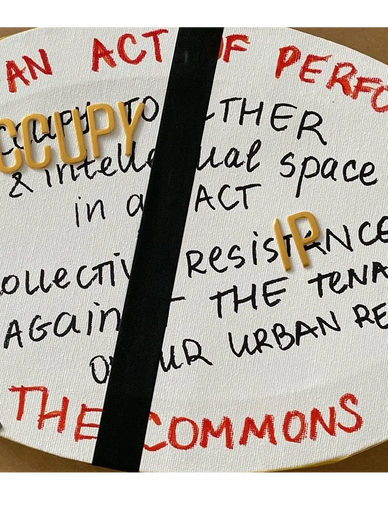 AN ACT OF PERFO
CCUPY TO THER
CCUPY
& intellectual space
in a ACT
OLLECTI RESISTANCE
IP
AGAIN THE TENA
OUR URBAN RE
THE COMMONS